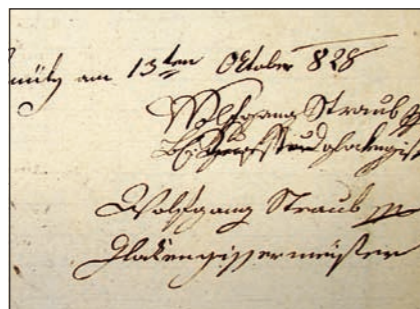 mütz am 13ten October 828
Wolfgang Straub
Wolfgang Straub
Glokengissermeister